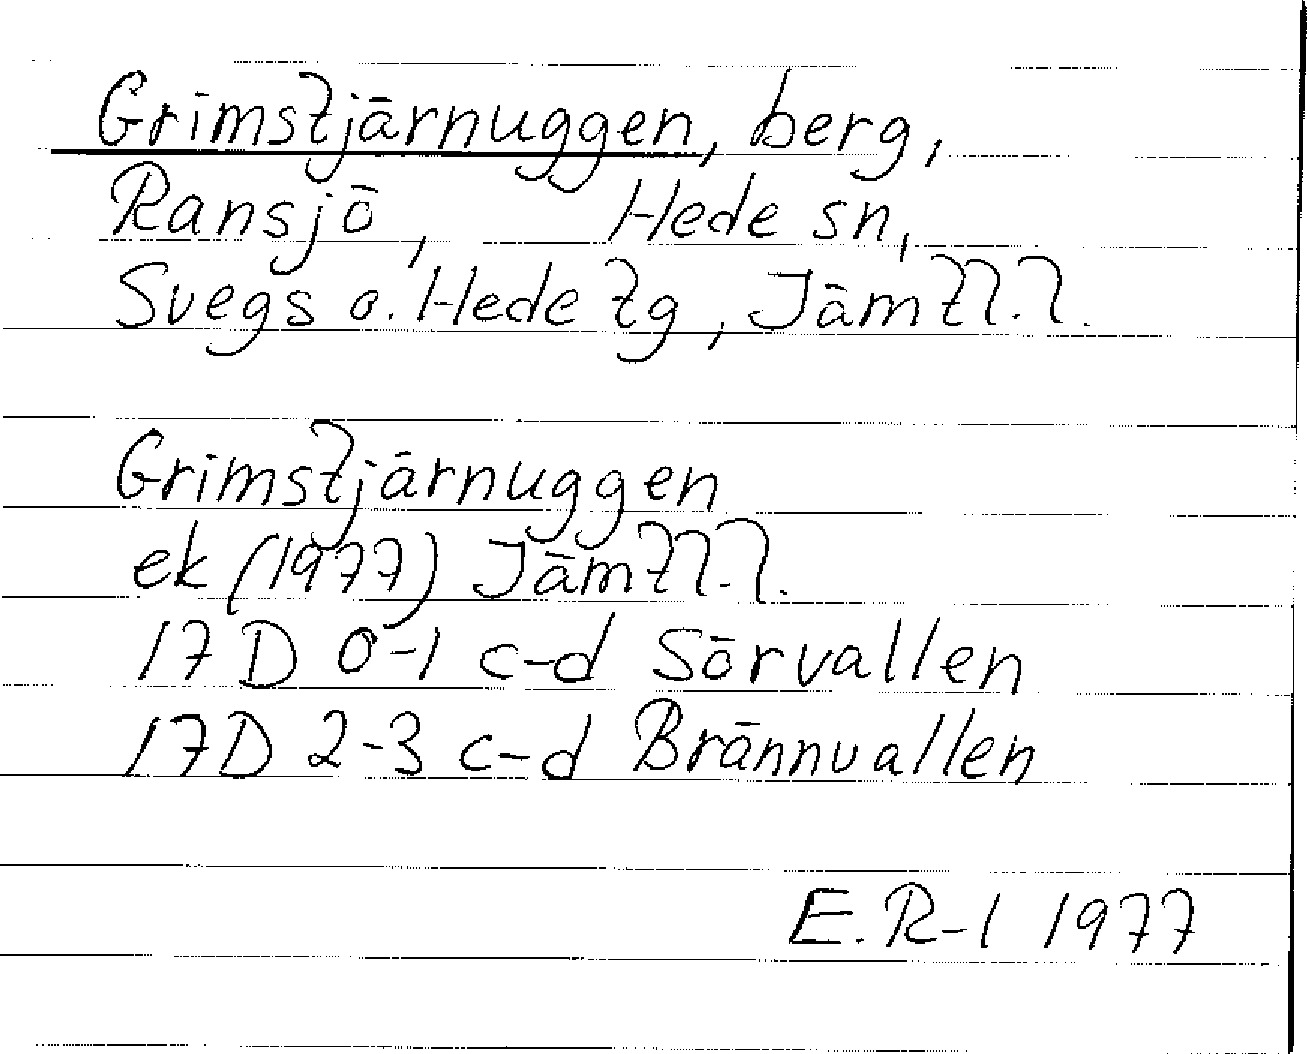 Grimstjärnuggen, berg,
Ransjö, Hede sn,
Svegs o. Hede tg, Jämtl. l.
Grimstjärnuggen
ek (1977) Jämtl. l.
17 D 0-1 c-d Sörvallen
17D 2-3 c-d Brännvallen
E. R-l 1977